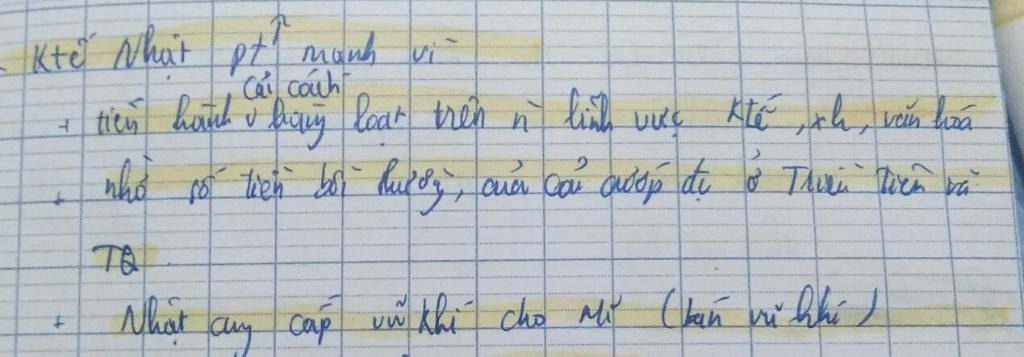 - Ktế Nhật pt↑ mạnh vì
cải cách
+ tiến hành v hàng loạt trên n` lĩnh vực Ktế, xh, văn hoá
+ nhờ số tiền bồi thường, của cải cướp đc ở Triều Tiên và
TQ
+ Nhật cung cấp vũ khí cho Mĩ (bán vũ khí)